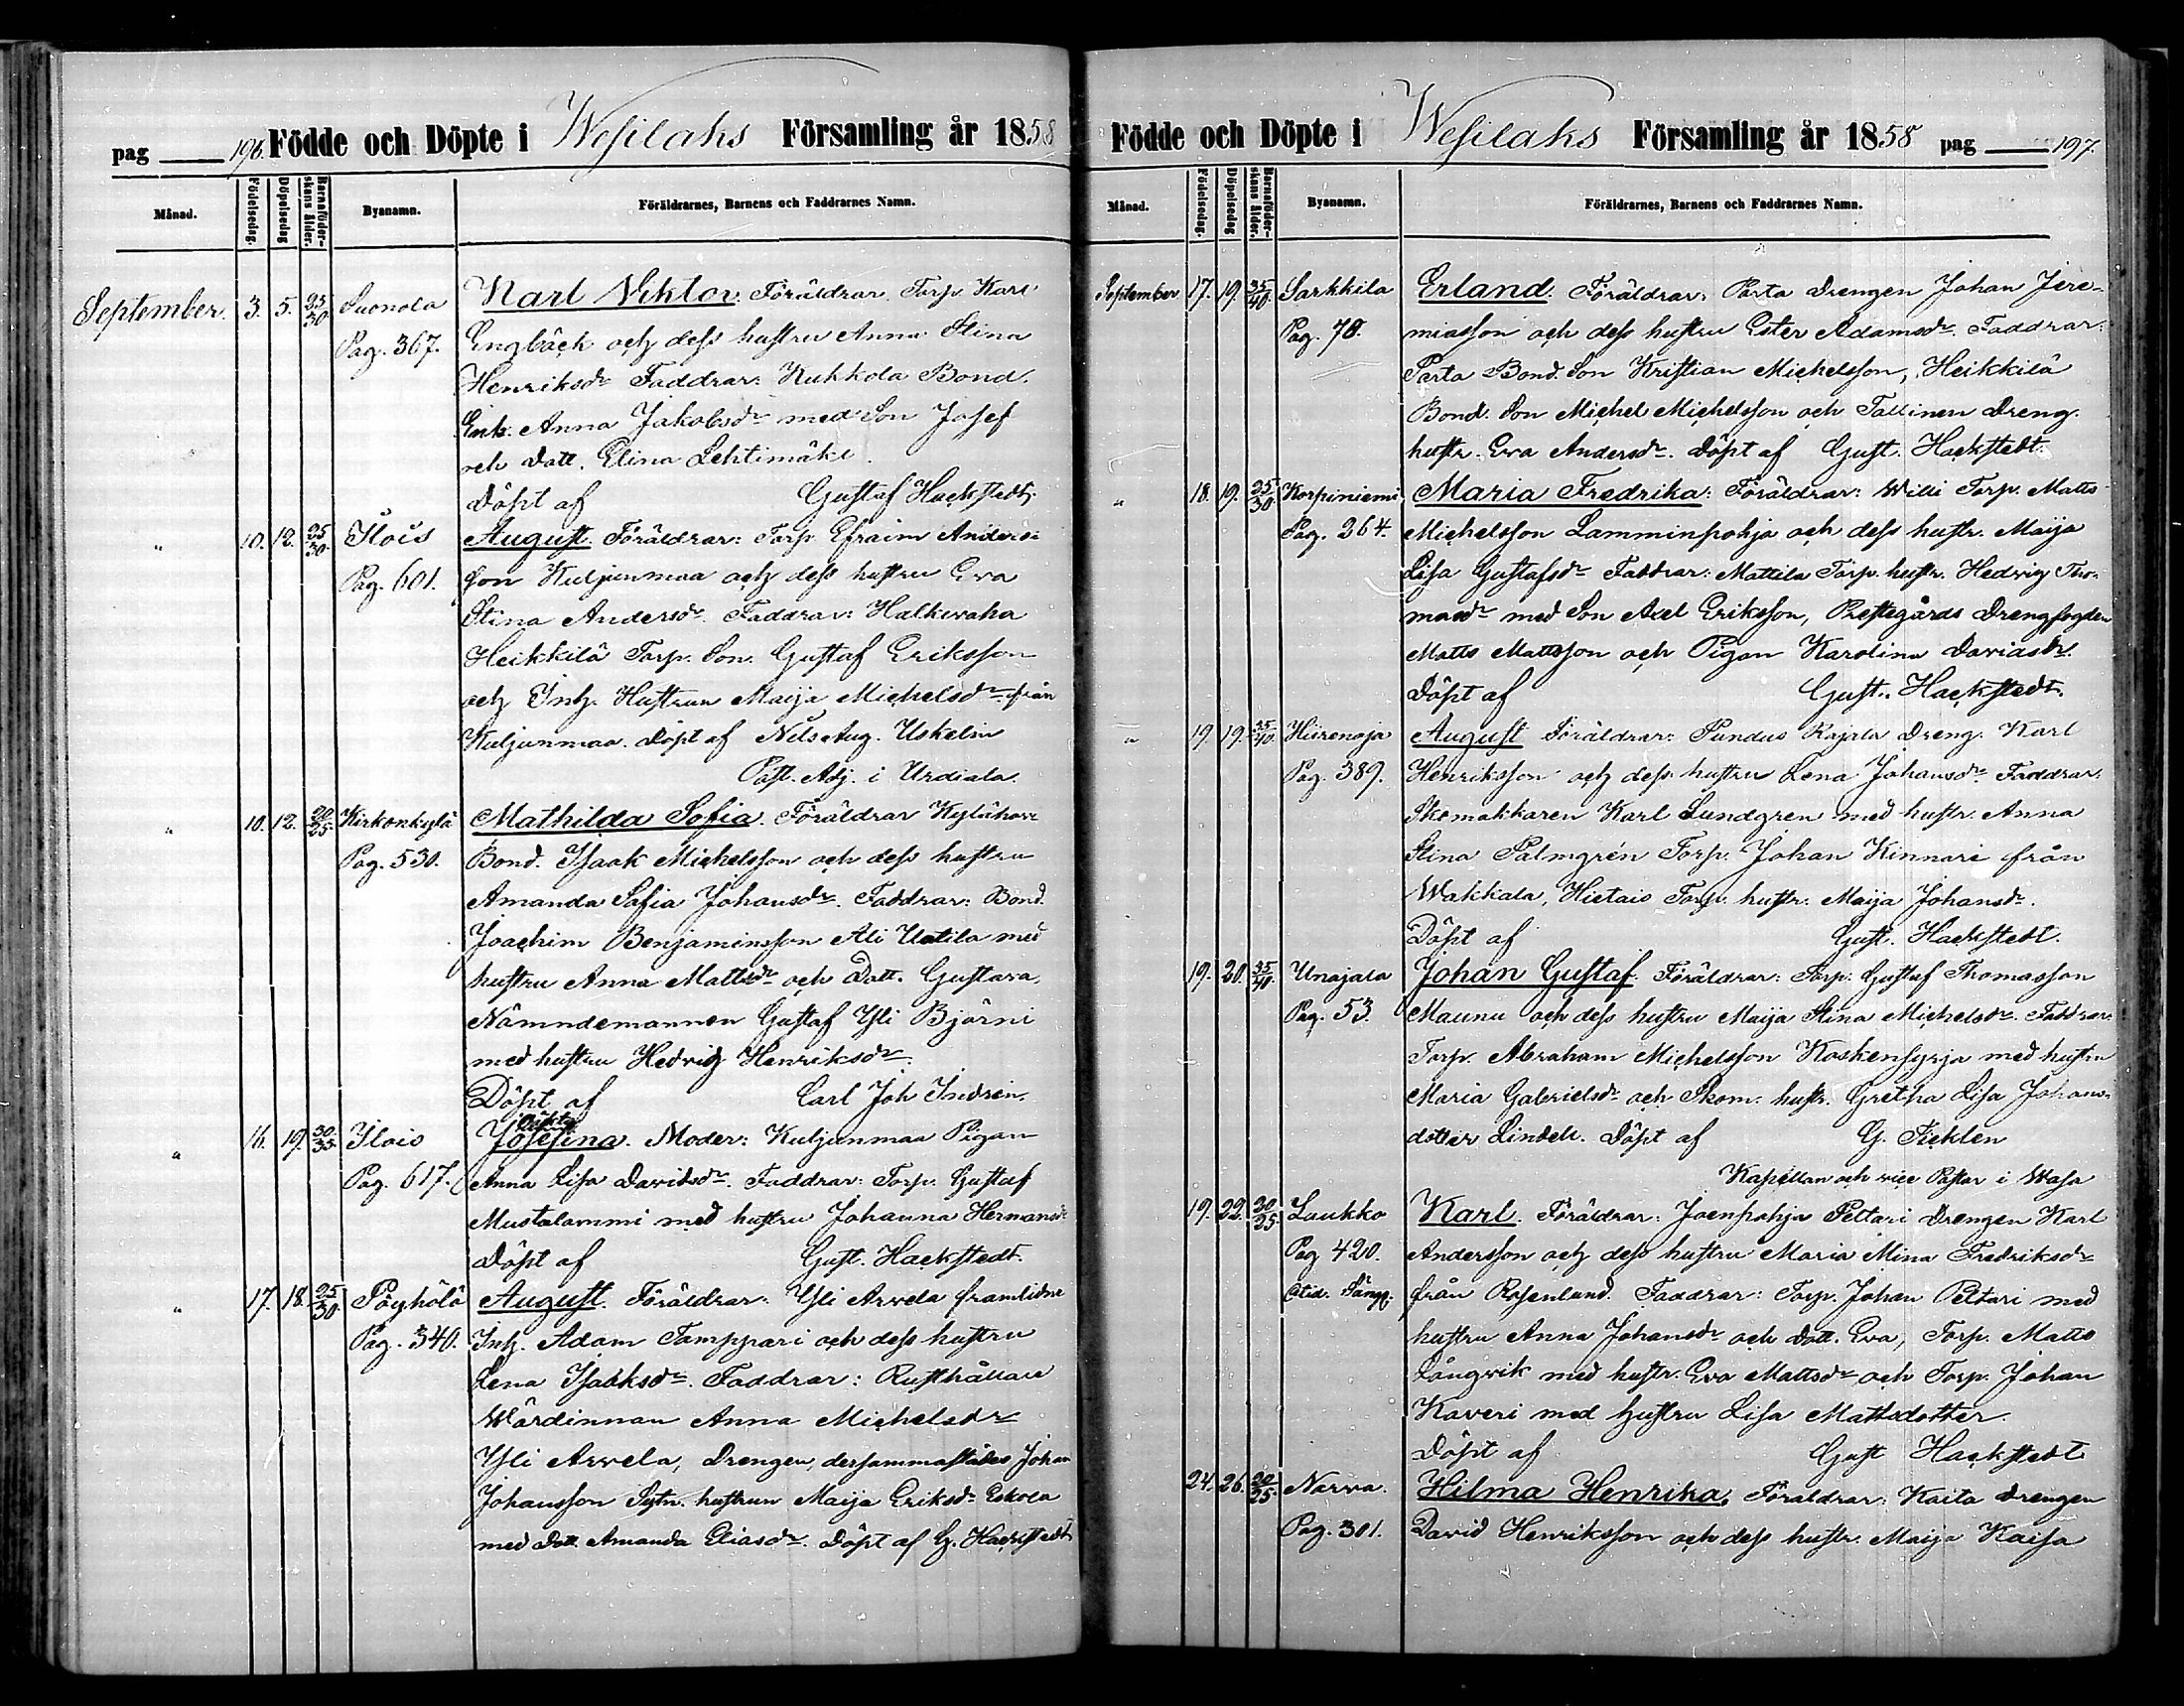 pag 196. Födde och Döpte i Wesilaks Församling år 1858
Månad. Födelsedag. Döpelsedag Barnaföderskans ålder. Byanamn. Föräldrarnes, Barnens och Faddrarnes Namn.
September. 3. 5. 25/30 Suonola Karl Viktor. Föräldrar. Torp. Karl
Pag. 367. Engbäck och dess hustru Anna Stina
Henriksdr Faddrar: Kukkola Bond.
Enk. Anna Jakobsdr med Son Josef
och Dott. Elina Lehtimäki.
Döpt af Gustaf Hackstedt.
" 10. 12. 25/30. Ilois August. Föräldrar: Torp. Efraim Anders-
Pag. 601. son Kuljunmaa och dess hustru Eva
Stina Andersdr. Faddrar: Halkivaha
Heikkilä Torp. Son. Gustaf Eriksson
och Inh. Hustrun Maija Michelsdr från
Kuljunmaa. Döpt af Nils Aug. Uskelin
Past. Adj. i Urdiala.
" 10. 12. 20/25. Kirkonkylä Mathilda Sofia. Föräldrar
Pag. 530. Bond. Isaak Michelsson och dess hustru
Amanda Sofia Johansdr. Faddrar: Bond.
Joachim Benjaminsson Ali Uotila med
hustru Anna Mattsdr och Dott. Gustava,
Nämndemannen Gustaf Yli Björni
med hustru Hedvig Henriksdr.
Döpt af Carl Joh Indrén.
" 16. 19. 30/35 Ilois Josefina. Moder: Kuljunmaa Pigan
Pag. 617. Anna Lisa Davidsdr. Faddrar: Torp. Gustaf
Mustalammi med hustru Johanna Hermansdr
Döpt af Gust. Hackstedt.
" 17. 18. 25/30 Pöyhölä August. Föräldrar: Yli Arvela framlidne
Pag. 340. Inh. Adam Tamppari och dess hustru
Lena Isaaksdr. Faddrar: Rusthållare
Wärdinnan Anna Michelsdr
Yli Arvela, Drengen, dersammastädes Johan
Johansson Sytn. hustrun Maija Eriksdr Eskola
med Dott. Amanda Eliasdr. Döpt af G. Hackstedt
Födde och Döpte i Wesilaks Församling år 1858 pag 197.
Månad. Födelsedag. Döpelsedag Barnaföderskans ålder. Byanamn. Föräldrarnes, Barnens och Faddrarnes Namn.
September 17. 19. 35/40. Sarkkila Erland. Föräldrar: Parta Drengen Johan Jere-
Pag. 78. miasson och dess hustru Ester Adamsdr. Faddrar:
Parta Bond. Son Kristian Michelsson, Heikkilä
Bond. Son Michel Michelsson och Tallinen Dreng.
hustr. Eva Andersdr. Döpt af Gust. Hackstedt.
" 18. 19. 25/30 Korpiniemi Maria Fredrika: Föräldrar: Willi Torp. Matts
Pag. 264. Michelsson Lamminpohja och dess hustr. Maija
Lisa Gustafsdr Faddrar: Mattila Torp. hustr. Hedvig Tho-
masdr med Son Axel Eriksson, Prestegårds Drengfogden
Matts Mattsson och Pigan Karolina Davidsdr.
Döpt af Gust. Hackstedt.
" 19. 19. 35/40. Hiirenoja August Föräldrar: Pundus Rajala Dreng. Karl
Pag. 389. Henriksson och dess hustru Lena Johansdr. Faddrar:
Skomakkaren Karl Lundgren med hustr. Anna
Stina Palmgrén Torp. Johan Kinnari från
Wakkala, Hietais Torp. hustr. Maija Johansdr.
Döpt af Gust. Hackstedt.
19. 20. 35/40. Unajala Johan Gustaf. Föräldrar: Torp. Gustaf Thomasson
Pag. 53. Maunu och dess hustru Maija Stina Michelsdr. Faddrar:
Torp. Abraham Michelsson Koskensyrjä med hustru
Maria Gabrielsdr och Skom. hustr. Gretha Lisa Johans-
dotter Lindell. Döpt af G.
Kapellan och vice Pastor i Wasa
19. 22. 20/25 Laukko Karl. Föräldrar: Joenpohja Pettari Drengen Karl
Pag 420. Andersson och dess hustru Maria Mina Fredriksdr
från Rosenlund. Faddrar: Torp. Johan Pettari med
hustru Anna Johansdr och Dott. Eva, Torp. Matts
Långvik med hustr. Eva Mattsdr och Torp. Johan
Kaveri med hustru Lisa Mattsdotter.
Döpt af Gust Hackstedt
24. 26. 20/25. Narva. Hilma Henrika. Föräldrar: Kaita Drengen
Pag. 301. David Henriksson och dess hustr. Maija Kaisa